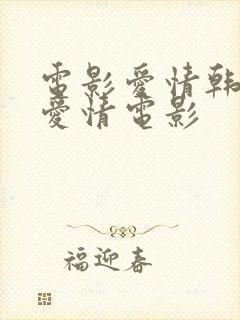 電影愛情韓
愛情電影
福迎春